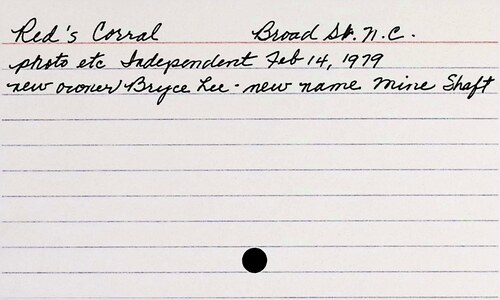 Red's Corral Broad St. N.C.
photo etc Independent Feb 14, 1979
new owner Bryce Lee - new name Mine Shaft